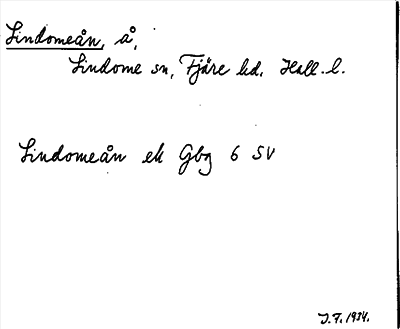 Lindomeån, å,
Lindome sn, Fjäre hd. Hall. l.
Lindomeån ek Gbg 6 SV
J.F. 1934.